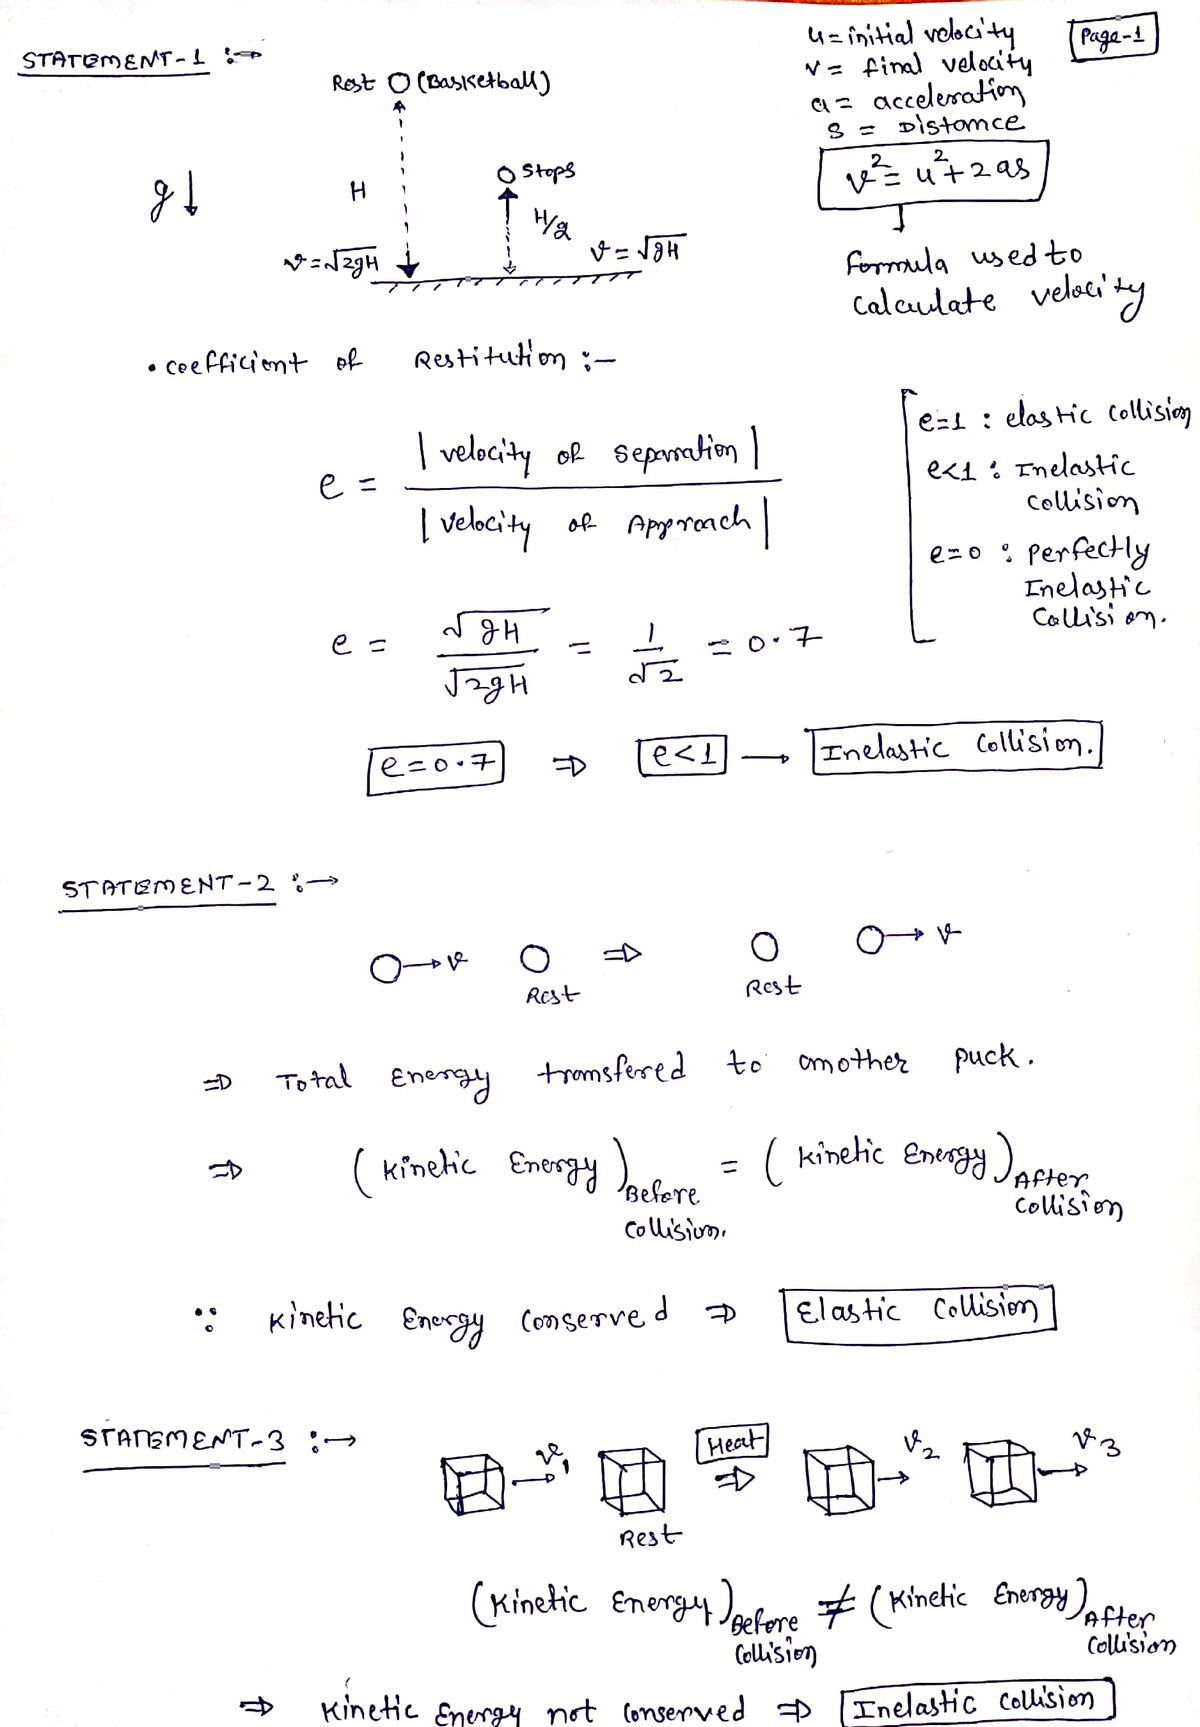 Page-1
u = initial velocity
v = final velocity
a = acceleration
s = Distance
v² = u² + 2as
Formula used to
calculate velocity
STATEMENT-1 :→
Rest (Basketball)
g↓
H
Stops
H/2
v = √2gH
v = √gH
• Coefficient of Restitution :-
e = |velocity of separation| / |velocity of Approach|
e=1 : elastic collision
e<1 : Inelastic
collision
e=0 : perfectly
Inelastic
Collision.
e = √gH / √2gH = 1/√2 = 0.7
e=0.7 ⇒ e<1 → Inelastic Collision.
STATEMENT-2 :→
→ v ⇒ → v
Rest Rest
⇒ Total Energy transfered to another puck.
⇒ (Kinetic Energy) Before = (Kinetic Energy) After
Collision. Collision
∵ Kinetic Energy Conserved ⇒ Elastic Collision
STATEMENT-3 :→
→ v₁ Heat ⇒ → v₂ → v₃
Rest
(Kinetic Energy) Before ≠ (Kinetic Energy) After
Collision Collision
⇒ Kinetic Energy not Conserved ⇒ Inelastic Collision